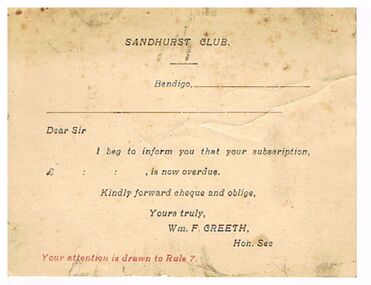 SANDHURST CLUB.
Bendigo,
Dear Sir
I beg to inform you that your subscription,
£ : : , is now overdue.
Kindly forward cheque and oblige,
Yours truly,
Wm. F. GREETH,
Hon. Sec
Your attention is drawn to Rule 7.